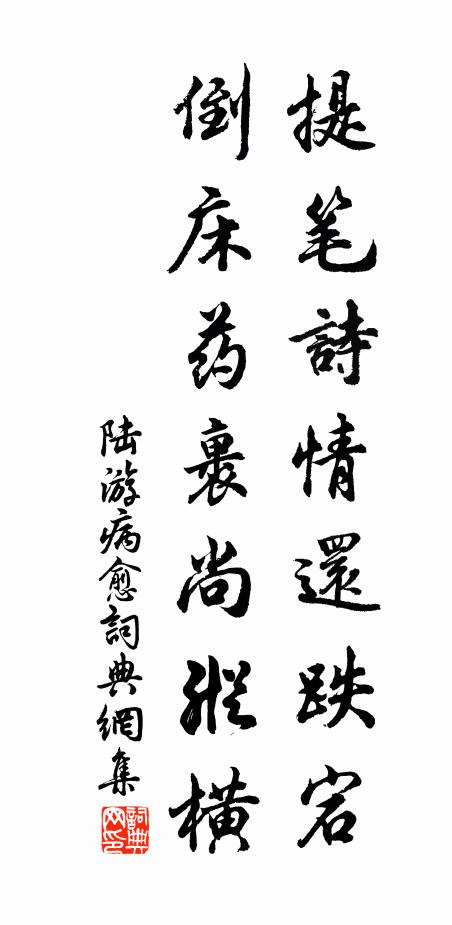 提笔詩情還跌宕
倒床药裹尚縱橫
陸游病愈詞典網集
詞典网印